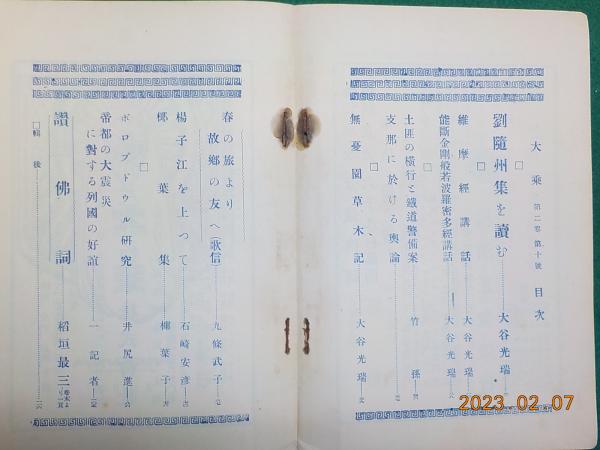 大乘 第二卷第十號 目次
劉隨州集を讀む 大谷光瑞
維摩經講話 大谷光瑞
能斷金剛般若波羅密多經講話 大谷光瑞
土匪の横行と鐵道警備案 竹孫
支那に於ける輿論
無憂園草木記 大谷光瑞
春の旅より
故鄕の友へ(歌信) 九條武子
楊子江を上つて 石崎安彦
椰葉集 椰葉子
ボロブドウル研究 井尻進
帝都の大震災
に對する列國の好誼 一記者
讚佛詞 稻垣最三
輯後
2023 02 07